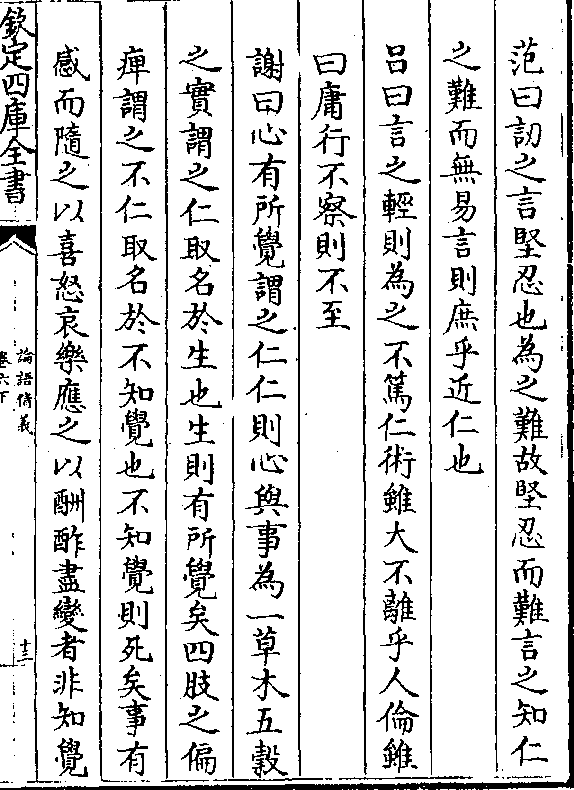 范曰訒之言堅忍也為之難故堅忍而難言之知仁
之難而無易言則庶乎近仁也
呂曰言之輕則為之不篤仁術雖大不離乎人倫雖
曰庸行不察則不至
謝曰心有所覺謂之仁仁則心與事為一草木五穀
之實謂之仁取名於生也生則有所覺矣四肢之偏
痺謂之不仁取名於不知覺也不知覺則死矣事有
感而隨之以喜怒哀樂應之以酬酢盡變者非知覺
欽定四庫全書
論語精義
卷六下
十三